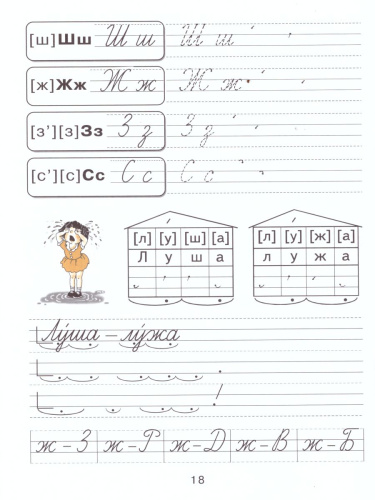 [ш]Шш Ш ш Ш ш
[ж]Жж Ж ж Ж ж
[з'][з]Зз З з З з
[с'][с]Сс С с С с
[л] [у] [ш] [а] [л] [у] [ж] [а]
Л у ш а л у ж а
Лу́ша – лу́жа
.
!
ж – З ж – Р ж – D ж – В ж – Б
18